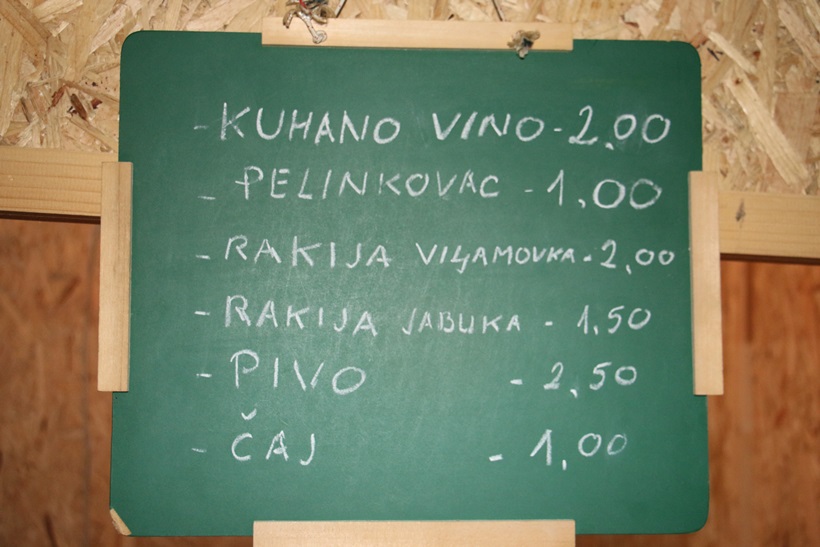 - KUHANO VINO - 2,00
- PELINKOVAC - 1,00
- RAKIJA VILJAMOVKA - 2,00
- RAKIJA JABUKA - 1,50
- PIVO - 2,50
- ČAJ - 1,00